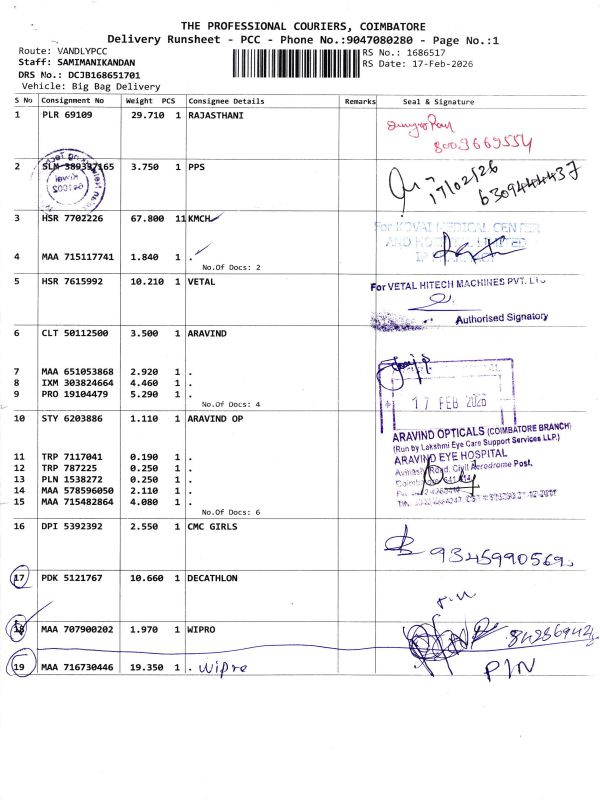 THE PROFESSIONAL COURIERS, COIMBATORE
Delivery Runsheet - PCC - Phone No.:9047080280 - Page No.:1
Route: VANDLYPCC
Staff: SAMIMANIKANDAN
DRS No.: DCJB168651701
Vehicle: Big Bag Delivery
RS No.: 1686517
RS Date: 17-Feb-2026
S No Consignment No Weight PCS Consignee Details Remarks Seal & Signature
1 PLR 69109 29.710 1 RAJASTHANI
8003669554
2 SLM 389397165 3.750 1 PPS
17/02/26
6309444437
3 HSR 7702226 67.800 11 KMCH
For KOVAI MEDICAL CENTER
AND HOSPITAL LIMITED
4 MAA 715117741 1.840 1 .
No.Of Docs: 2
5 HSR 7615992 10.210 1 VETAL
For VETAL HITECH MACHINES PVT. LTD
Authorised Signatory
6 CLT 50112500 3.500 1 ARAVIND
7 MAA 651053868 2.920 1 .
8 IXM 303824664 4.460 1 .
9 PRO 19104479 5.290 1 .
No.Of Docs: 4
17 FEB 2026
10 STY 6203886 1.110 1 ARAVIND OP
ARAVIND OPTICALS (COIMBATORE BRANCH)
(Run by Lakshmi Eye Care Support Services LLP.)
ARAVIND EYE HOSPITAL
Avinashi Road, Civil Aerodrome Post,
11 TRP 7117041 0.190 1 .
12 TRP 787225 0.250 1 .
13 PLN 1538272 0.250 1 .
14 MAA 578596050 2.110 1 .
15 MAA 715482864 4.080 1 .
No.Of Docs: 6
16 DPI 5392392 2.550 1 CMC GIRLS
9345990569
17 PDK 5121767 10.660 1 DECATHLON
18 MAA 707900202 1.970 1 WIPRO
19 MAA 716730446 19.350 1 . Wipro